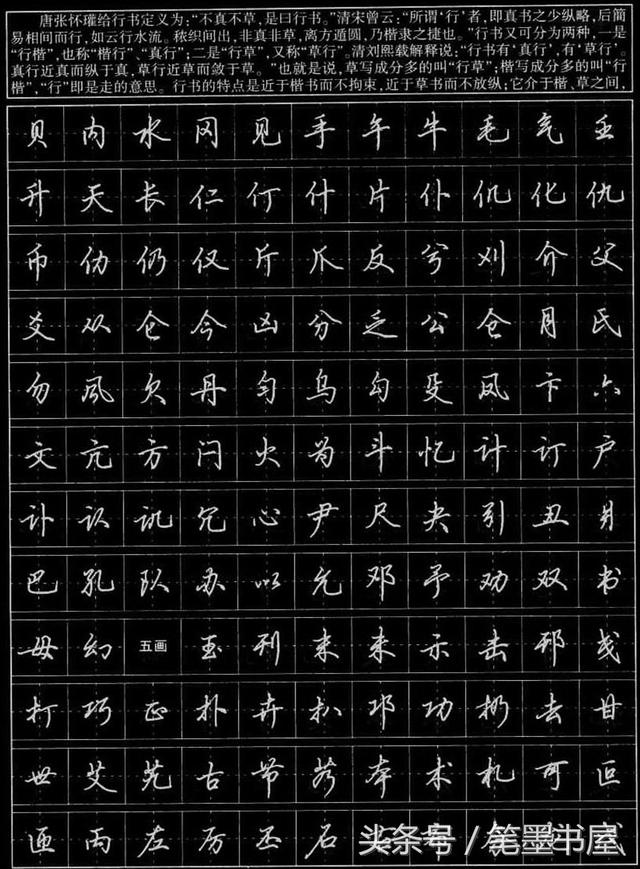 唐张怀瓘给行书定义为:“不真不草,是曰行书。”清宋曾云:“所谓‘行’者,即真书之少纵略,后简
易相间而行,如云行水流。秾织间出,非真非草,离方遁圆,乃楷隶之捷也。”行书又可分为两种,一是
“行楷”,也称“楷行”、“真行”;二是“行草”,又称“草行”。清刘熙载解释说:“行书有‘真行’,有‘草行’。
真行近真而纵于真,草行近草而敛于草。”也就是说,草写成分多的叫“行草”;楷写成分多的叫“行
楷”,“行”即是走的意思。行书的特点是近于楷书而不拘束,近于草书而不放纵;它介于楷、草之间,
贝 内 水 冈 见 手 午 牛 毛 气 壬
升 夭 长 仁 仃 什 片 仆 仉 化 仇
币 仂 仍 仅 斤 爪 反 兮 刈 介 父
爻 从 仑 今 凶 分 乏 公 仓 月 氏
勿 風 欠 丹 匀 乌 勾 殳 凤 卞 六
文 亢 方 闩 火 为 斗 忆 计 订 户
讣 认 讥 冗 心 尹 尺 夬 引 丑 爿
巴 孔 队 办 以 允 邓 予 劝 双 书
毋 幻 五画 玉 刊 末 未 示 击 邗 戋
打 巧 正 扑 卉 扒 邛 功 扔 去 甘
世 艾 艽 古 节 艿 本 术 机 可 叵
匝 丙 左 厉 丕 石
头条号/笔墨书屋